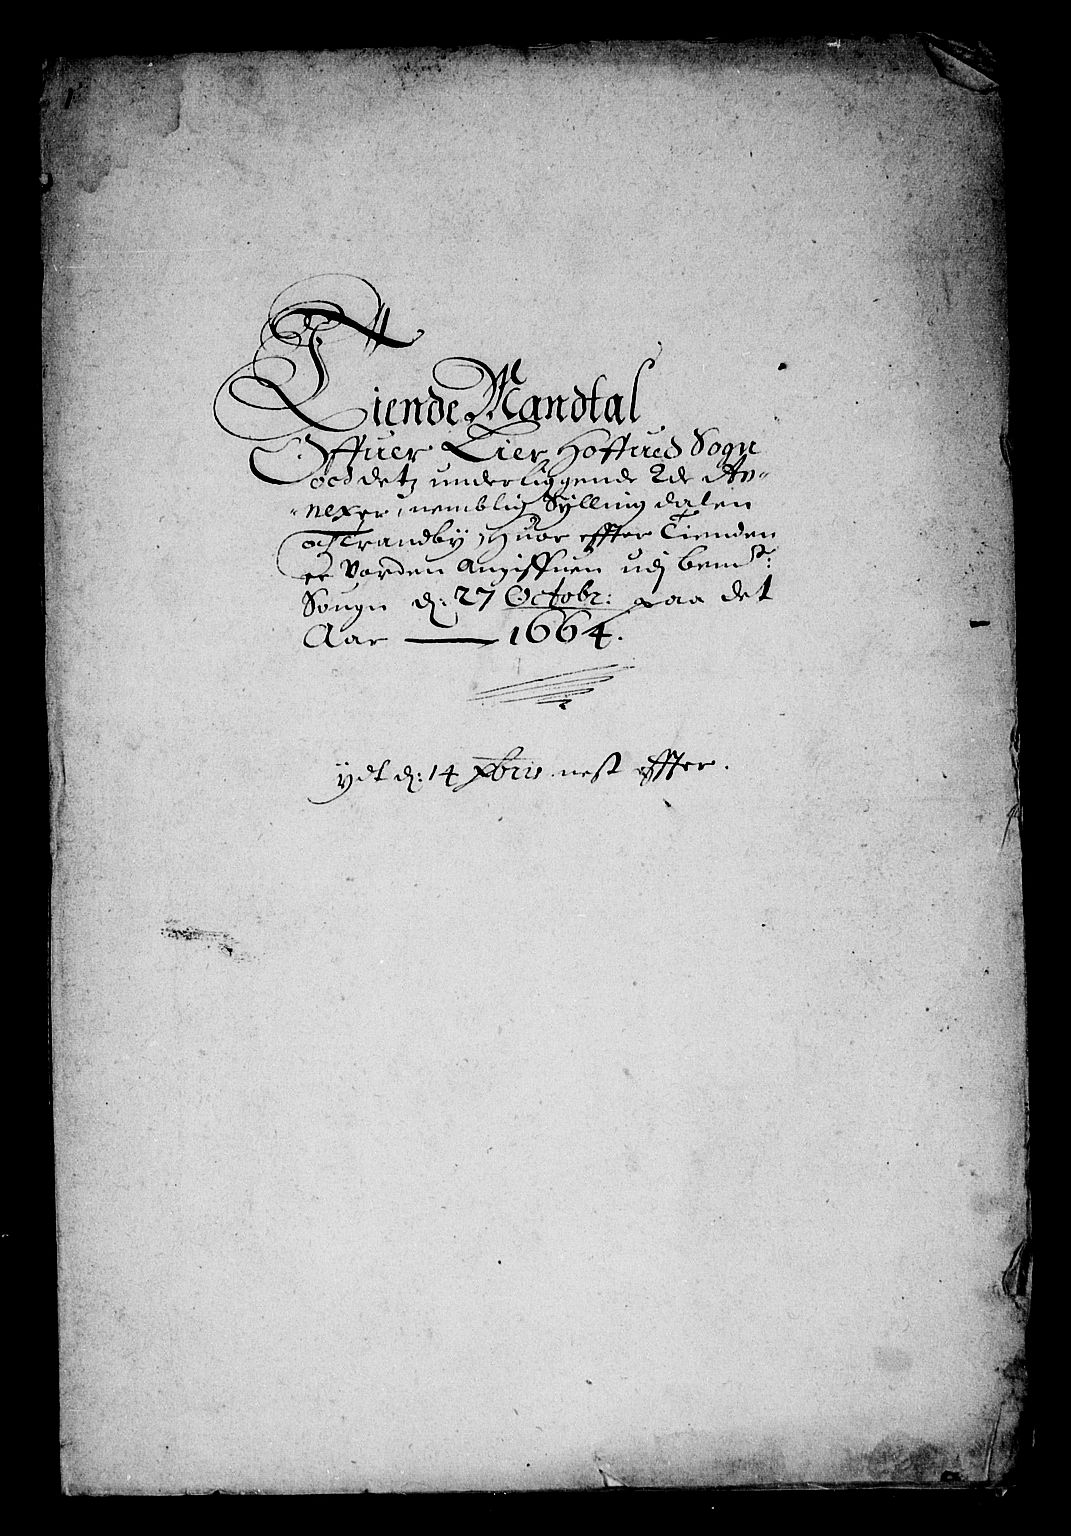 Tiende Mandtal
Offuer Lier Hoffued Sogn
och detz underliggende 2de An-
-nexer, nemblig Sylling dalen
og Trandby, huor effter Tienden
er Vorden Angiffuen udj bemte:
Sougn d: 27 Octobr: paa det
Aar 1664.
ydt d: 14 xbris nest effter.